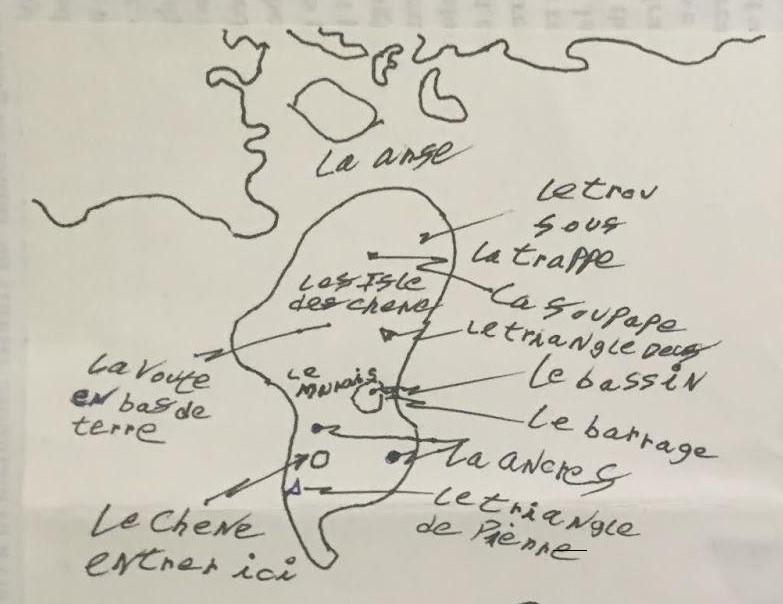 La anse
Le trou
sous
la trappe
Les Isle
des chene
La soupape
Le triangle deus
Le
marais
Le bassin
La voute
en bas de
terre
Le barrage
La ancres
Le triangle
de Pierre
Le Chene
entrer ici